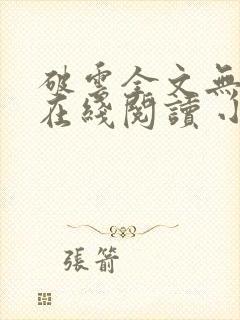 破雲全文無
在綫閱讀 小
張箭